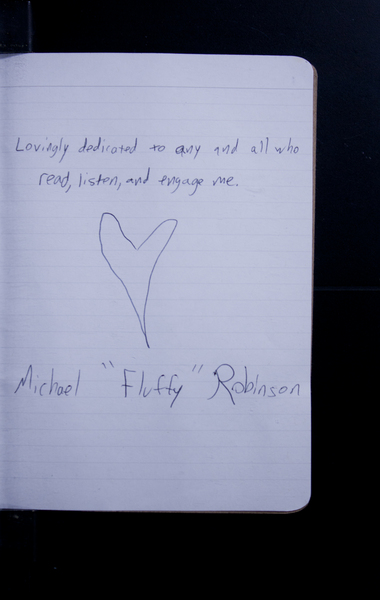 Lovingly dedicated to any and all who
read, listen, and engage me.
Michael "Fluffy" Robinson